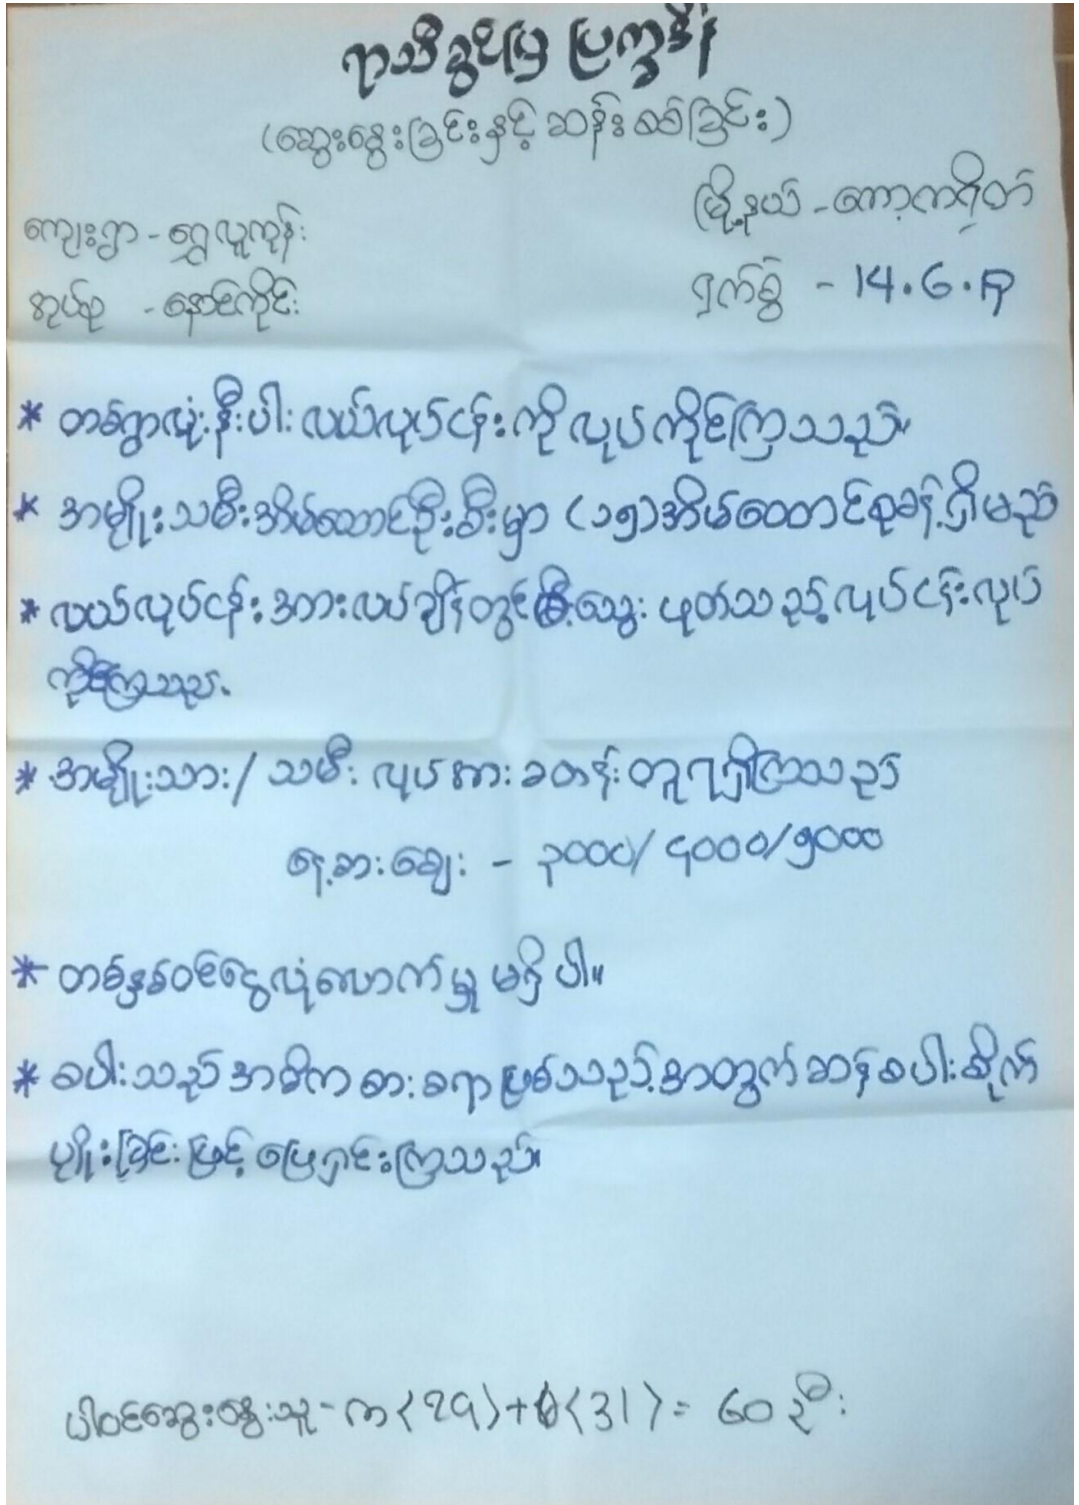 ရာသီခွင်ပြ ပြက္ခဒိန်
(ဆွေးနွေးခြင်းနှင့် ဆန်းစစ်ခြင်း)
မြို့နယ် - ကော့ကရိတ်
ကျေးရွာ - ရွှေလူကုန်း
အုပ်စု - နောင်ကိုင်း
ရက်စွဲ - 14.6.17
* တစ်ရွာလုံးနီးပါး လယ်လုပ်ငန်းကို လုပ်ကိုင်ကြသည်။
* အမျိုးသမီးအိမ်ထောင်ဦးစီးမှာ (၁၅)အိမ်ထောင်စုခန့်ရှိမည်
* လယ်လုပ်ငန်း အားလပ်ချိန်တွင် မီးသွေး ဖုတ်သည့် လုပ်ငန်းလုပ်
ကိုင်ကြသည်။
* အမျိုးသား/သမီး လုပ်အားခတန်းတူရရှိကြသည်
နေ့စားချေး - ၃၀၀၀/၄၀၀၀/၅၀၀၀
* တစ်နှစ်ဝင်ငွေလုံလောက်မှု မရှိပါ။
* စပါးသည် အဓိကစားစရာ ဖြစ်သည့်အတွက် ဆန်စပါးစိုက်
ပျိုးခြင်းဖြင့် ဖြေရှင်းကြသည်။
ပါဝင်ဆွေးနွေးသူ - က (29) + (31) = ၆၀ ဦး